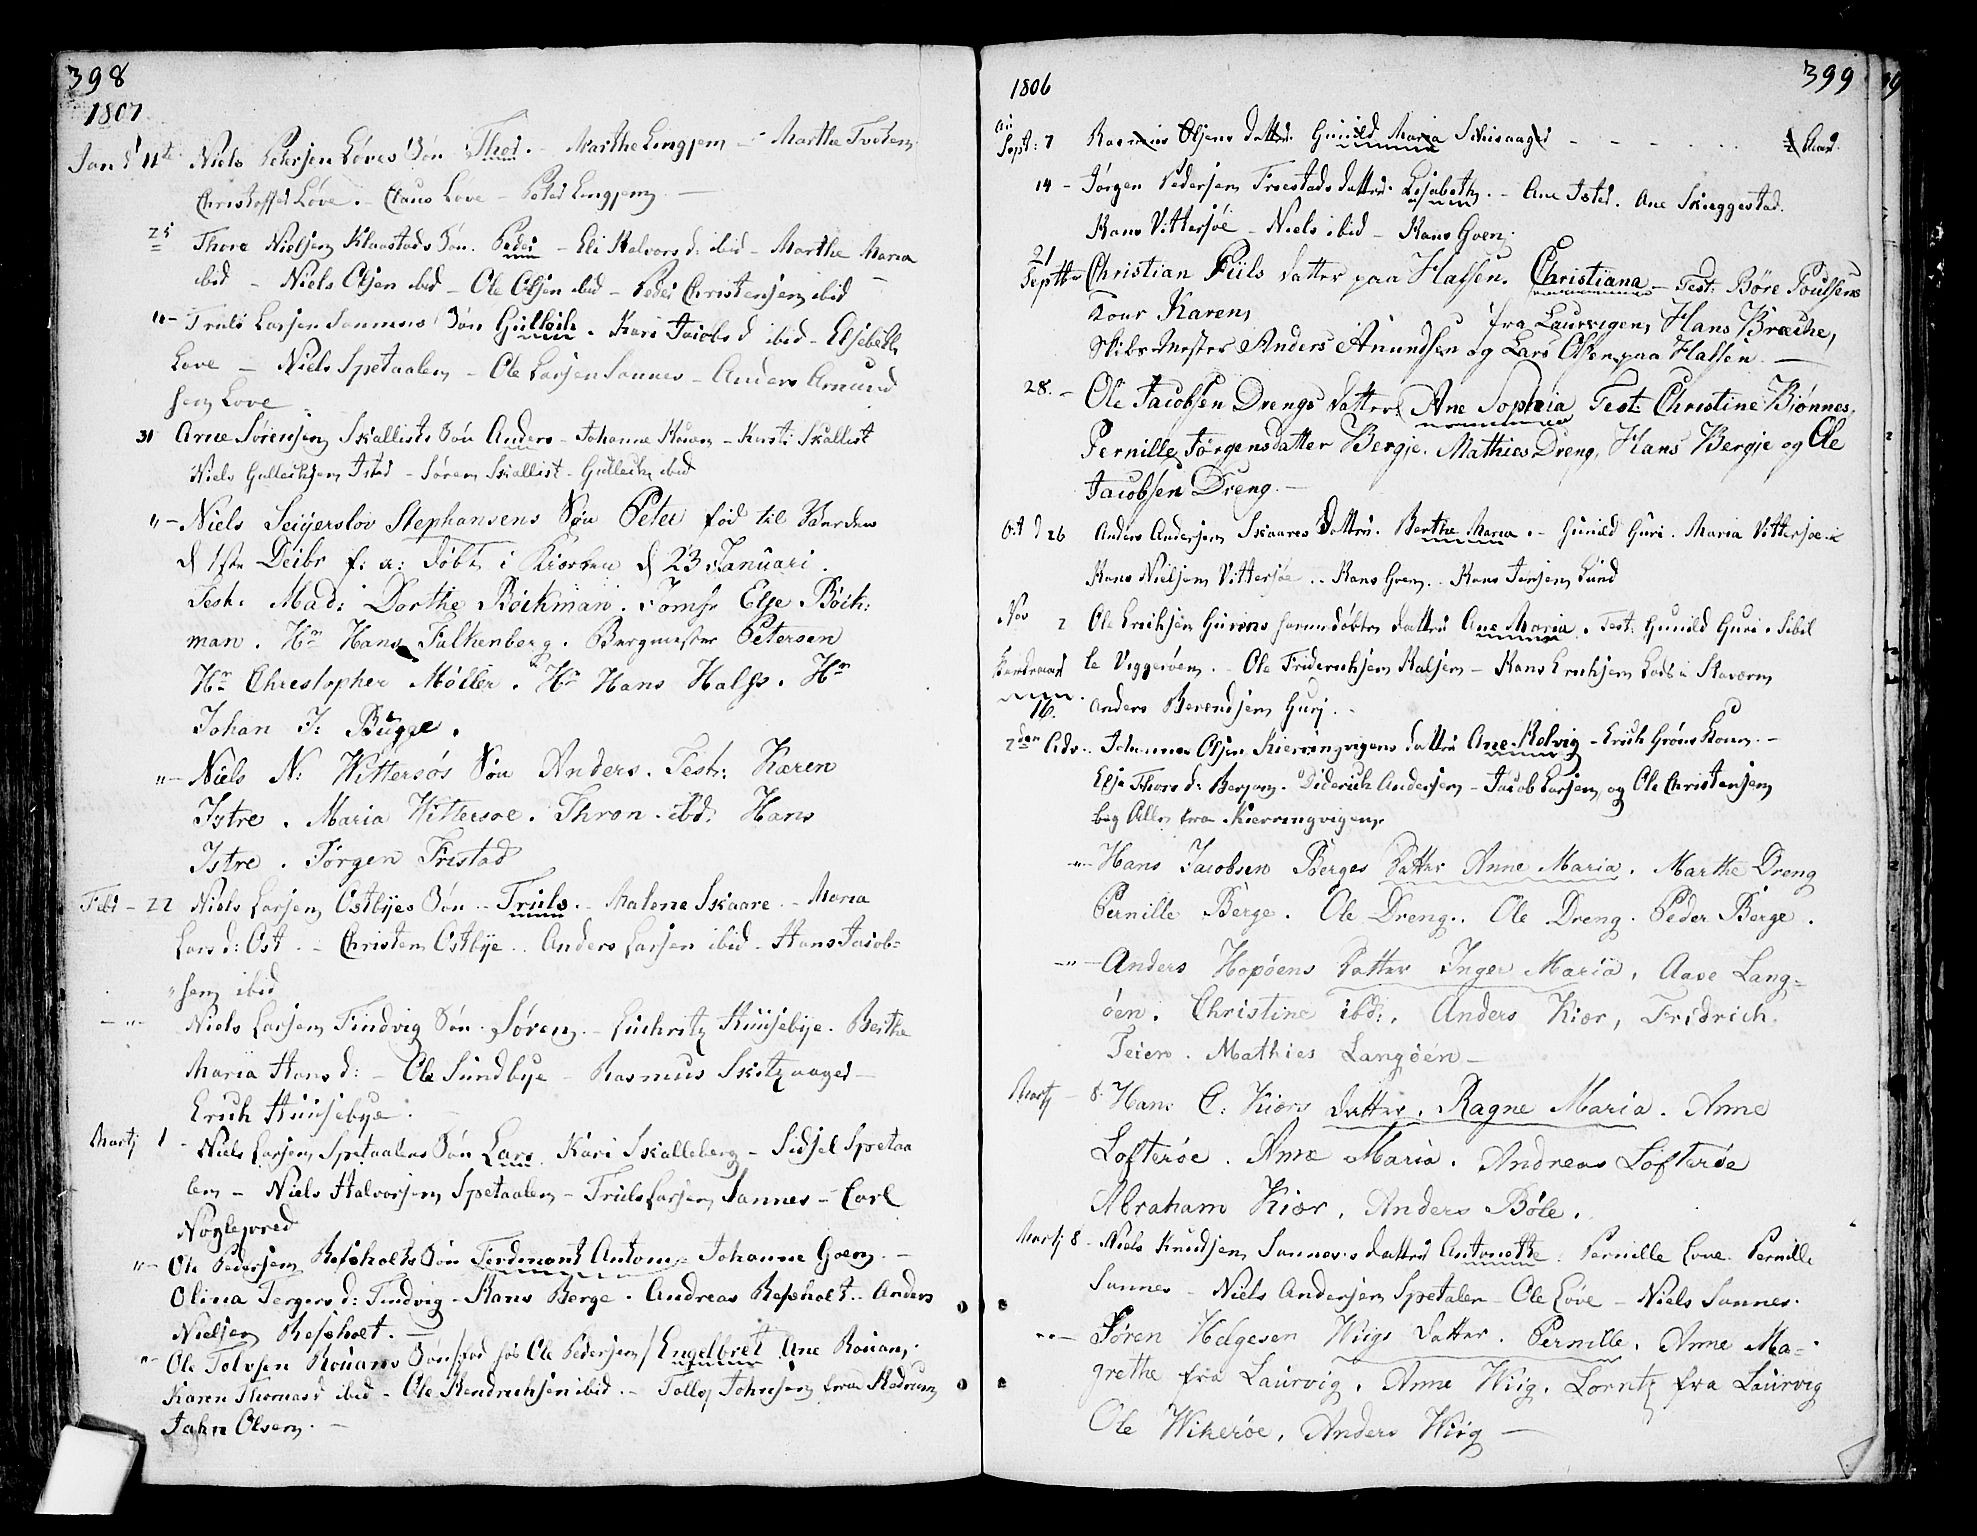 398
1807
Jan d 11te Niels Pedersen Løves Søn Thor. - Marthe Lingjem - Marthe Tveten
Christoffer Løve. - Claus Love - Peder Lingjem -
25 Thore Nielsen Klaastads Søn. Peder - Eli Halvors d: ibid - Marthe Maria
ibid - Niels Olsen ibd - Ole Olsen ibid - Peder Christensen ibid
" - Truls Larsen Sannes Søn Gulleik. Kari Jacobs d ibid - Elsebeth
Love - Niels Spetaalen - Ole Larsen Sannes - Anders Amund
sen Love
31 Arne Sørensen Skallists Søn Anders - Johanne - Kirsti Skallist
Niels Gulleichsen Isted - Søren Skallist - Gulleich ibid
" - Niels Seijersløv Stephansens Søn Peter fød til Verden
d 1ste Decbr f: a: døbt i Kiørken d 23 Januari.
Test. Mad: Dorthe Böckman. Jomfr Else Böck:
man. Hr Hans Falkenberg. Burgmester Petersen
Hr Christopher Møller. Hr Hans Halss. Hr
Johan J: Bugge.
" - Niels N: Wittersøs Søn Anders. Test: Karen
Istre. Maria Wittersoe. Thron ibd: Hans
Istre. Jørgen Fristad
Febr - 22 Niels Larsen Ostbyes Søn - Truls. - Malene Skaare - Maria
Lars d: Ost. - Christen Ostbye. - Anders Larsen ibid - Hans Jacob=
sen ibid
- " - Niels Larsen Tindvig Søn. Søren. - Huusebye. Berthe
Maria Hans d: - Ole Sundbye - Rasmus Skitzaager -
Erich Huusebye.
Martj 1 - Niels Larsen Spetaalens Søn Lars. Kari Skalleberg - Sidsel Spetaa
len - Niels Halvorsen Spetaalen - Truls Larsen Sannes - Carl
Noglegred
" - Ole Pedersen Røsholts Søn Ferdinant Antom - Johanne Goen. -
Olina Tergers d: Tindvig - Hans Berge. Andreas Røsholt. - Anders
Nielsen Røsholt. -
" - Ole Tolvsen Rouans Søn /: fød hos Ole Pedersen / Engelbret Ane Rouan,
Karen Thomas d ibid - Ole Hendrichsen ibid. - Tollef Johnsen fra Hedrum
Jahn Olsen. -
1806 399
Sept: 7 Rasmus Olsens datter Gunild Maria Skisaager - - - - . . .
14 - Jørgen Pedersen Freestads datter. Lisabeth. - Ane Isted. Ane Skiggestad.
Hans Vittersøe - Niels ibid - Hans Goen.
21 Septbr Christian Fiils datter paa Halsen. Christiana - Test: Børe Poulsens
Kone Karen, fra Laurvigen, Hans Bræche,
Skibs Mester Anders Amundsen og Lars Olsen paa Halsen. -
28. - Ole Jacobsen Drengs datter Ane Sophia Test: Christine Biønnes.
Pernille Jørgensdatter Bergje. Mathies Dreng, Hans Bergje og Ole
Jacobsen Dreng. -
Oct d 26 Anders Andersen Skaares datter. Berthe Maria. - Gunild Guri. Maria Vittersoe. -
Hans Nielsen Vittersøe. . Hans Goen. . Hans Jensen Lund
Nov 2 Ole Erichsen Gurens hiemmedøbte datter Ane Maria. Test: Gunild Guri. Sibil
le Viggerøen. - Ole Friderichsen Halsen - Hans Erichsen Lods i Stavern
16. Anders Berendsen Guri. -
2den Adv. . Johannes Olsen Kierringvigens datter Ane Helvig - Erich Grøns Kone. -
Else Thors d: Berjan. Diderich Andersen - Jacob Larsen og Ole Christensen
beg Alle fra Kierringvigen.
" - Hans Jacobsen Berges datter Anne Maria. Marthe Dreng
Pernille Berge. Ole Dreng. Ole Dreng. Peder Berge.
- " - Anders Hopöens datter Inger Maria. Aase Lang=
öen. Christine ibd:. Anders Kiær, Fridrich
Teien. Mathies Langöen -
Martj - 8. Hans C: Kiærs datter. Ragne Maria. Anne
Lofterøe. Anne Maria. Andreas Lofterøe
Abraham Kiær. Anders Bøle.
Martj 8 - Niels Knudsen Sannes's datter Antonette. Pernille Love. Pernille
Sannes - Niels Andersen Spetalen - Ole Løve - Niels Sannes.
" - Søren Helgesen Wiigs datter. Pernille. Anne Ma=
grethe fra Laurvig. Anne Wiig. Lorntz fra Laurvig
Ole Wikerøe, Anders Wiig -